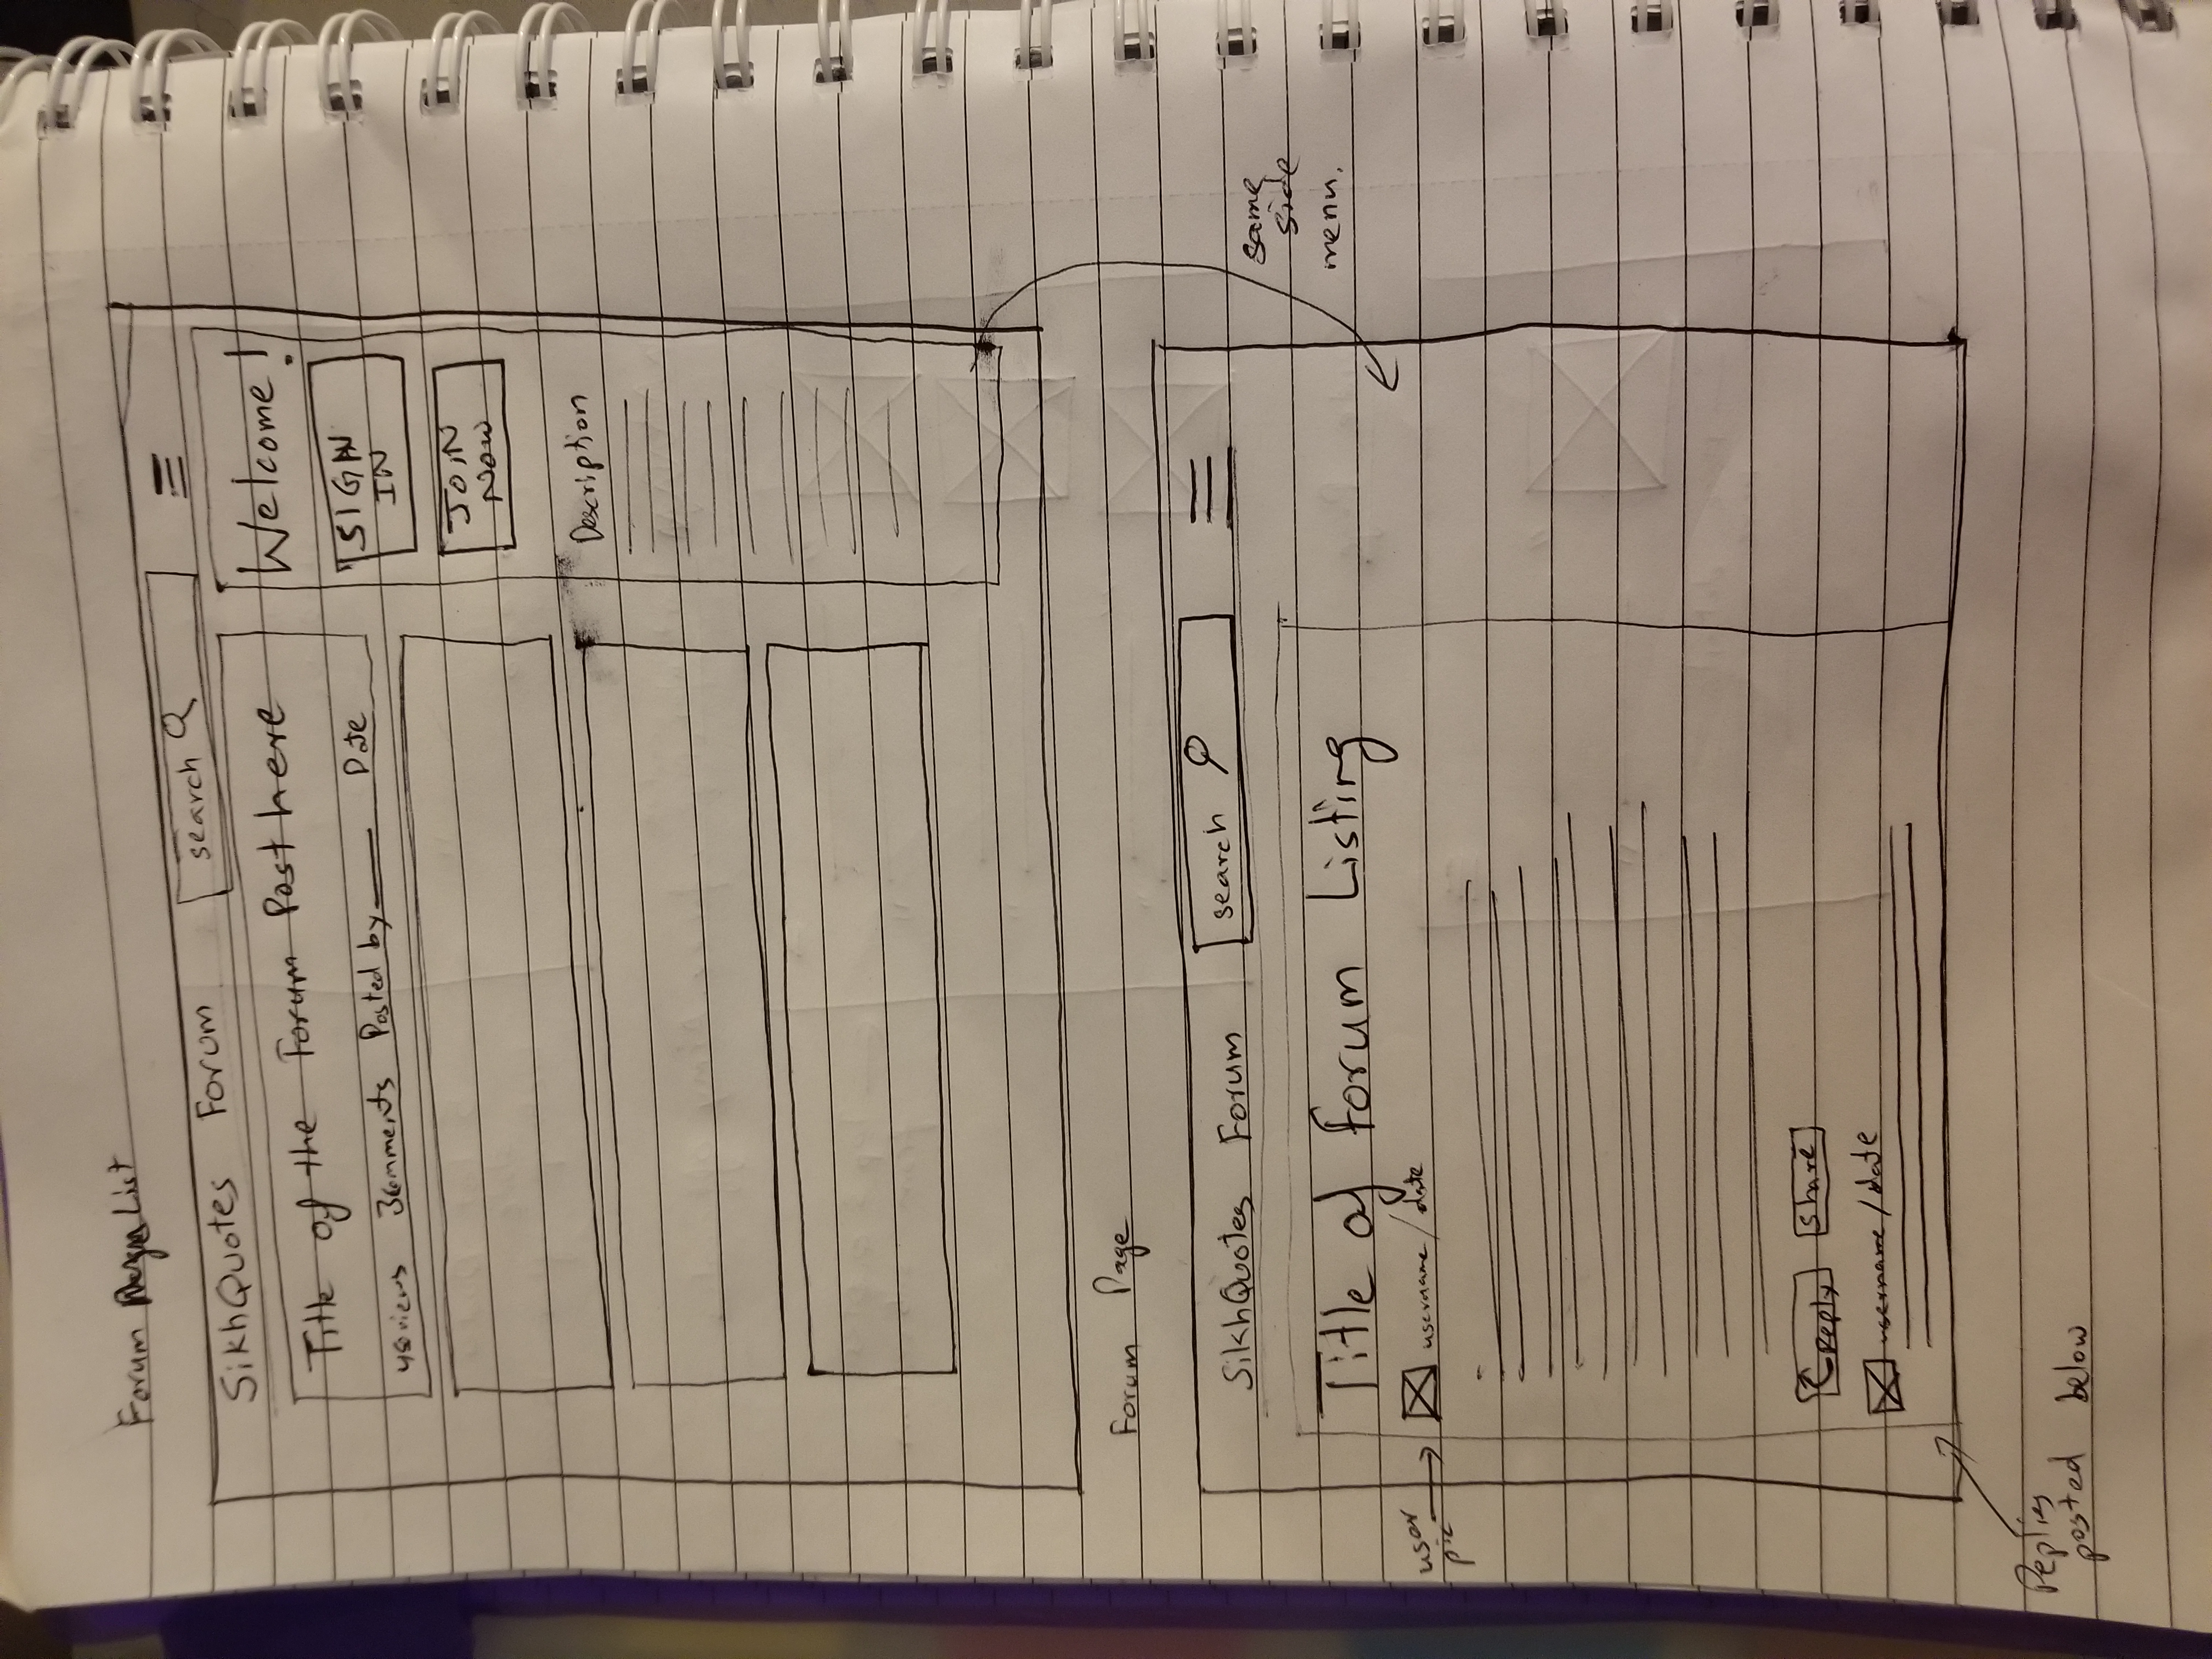 Forum List
SikhQuotes Forum
search
Title of the Forum Post here
views 3 comments Posted by Date
Welcome!
SIGN
IN
JOIN
NOW
Description
Forum Page
SikhQuotes Forum
search
Title of Forum Listing
user
pic
username/date
same
side
menu.
Reply
Share
username/date
Replies
posted below